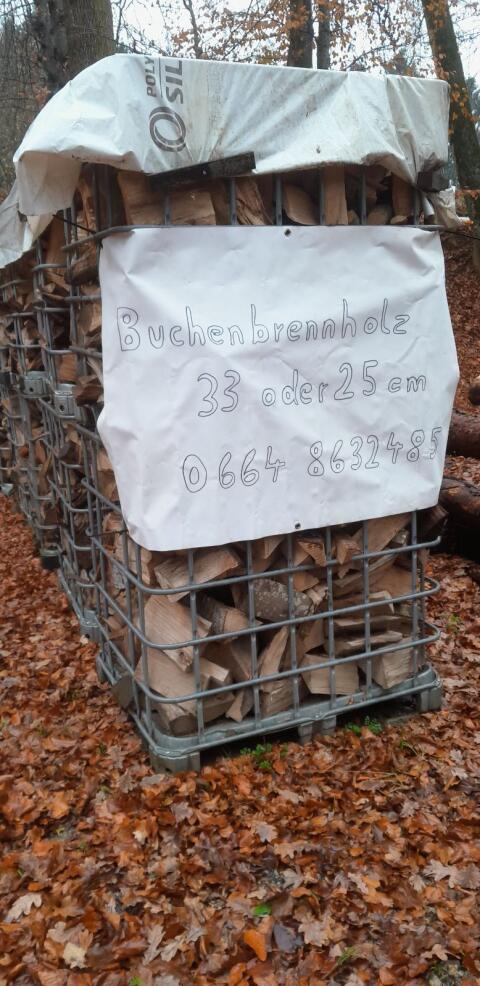 POLY
SIL
Buchenbrennholz
33 oder 25 cm
0664 8632485